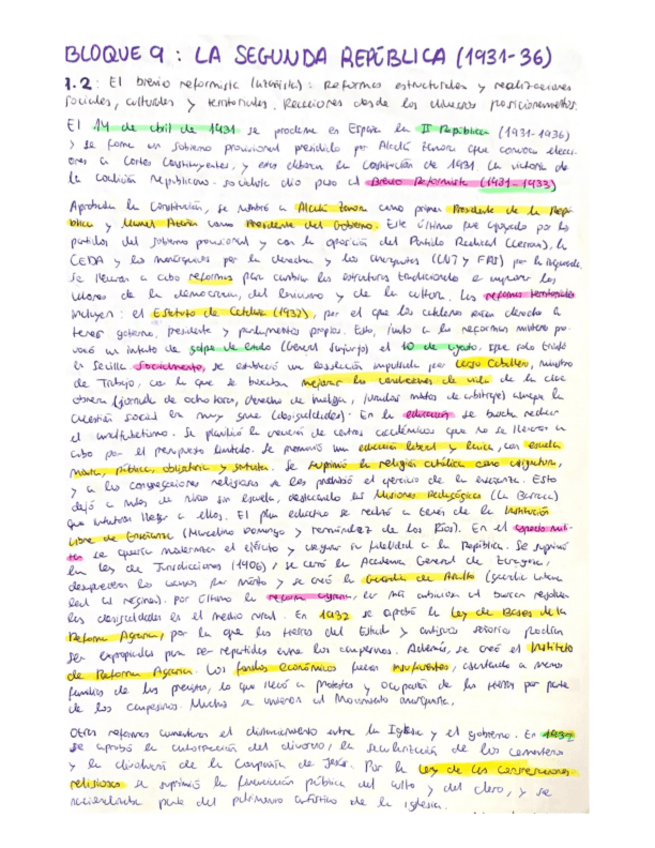 BLOQUE 9 : LA SEGUNDA REPÚBLICA (1931-36)
1.2: El bienio reformista (azañista): Reformas estructurales y realizaciones
sociales, culturales y territoriales. Reacciones desde los diversos posicionamientos.
El 14 de abril de 1931 se proclama en España la II República (1931-1936)
y se forma un gobierno provisional presidido por Alcalá Zamora que convoca elecci-
ones a Cortes Constituyentes, y estas elaboran la Constitución de 1931. La victoria de
la coalición republicano-socialista dio paso al Bienio Reformista (1931-1933)
Aprobada la Constitución, se nombró a Alcalá Zamora como primer Presidente de la Repú-
blica y Manuel Azaña como Presidente del Gobierno. Este último fue apoyado por los
partidos del gobierno provisional y con la oposición del Partido Radical (Lerroux), la
CEDA y los monárquicos por la derecha y los anarquistas (CNT y FAI) por la izquierda.
Se llevaron a cabo reformas para cambiar las estructuras tradicionales e implantar los
valores de la democracia, del laicismo y de la cultura. Las reformas territoriales
incluyen: el Estatuto de Cataluña (1932), por el que los catalanes tenían derecho a
tener gobierno, presidente y parlamentos propios. Esto, junto a las reformas militares pro-
vocó un intento de golpe de estado (General Sanjurjo) el 10 de agosto, que solo triunfó
en Sevilla. Socialmente, se estableció una legislación impulsada por Largo Caballero, ministro
de Trabajo, con la que se buscaban mejorar las condiciones de vida de la clase
obrera (jornada de ocho horas, derecho de huelga, jurados mixtos de arbitraje) aunque la
cuestión social era muy grave (desigualdades). En la educación se buscó reducir
el analfabetismo. Se planificó la creación de centros académicos que no se llevaron a
cabo por el presupuesto limitado. Se promovió una educación liberal y laica, con escuela
mixta, pública, obligatoria y gratuita. Se suprimió la religión católica como asignatura,
y a las congregaciones religiosas se les prohibió el ejercicio de la enseñanza. Esto
dejó a miles de niños sin escuela, destacando las Misiones Pedagógicas (La Barraca)
que intentaban llegar a ellos. El plan educativo se realizó a través de la Institución
Libre de Enseñanza (Marcelino Domingo y Fernández de los Ríos). En el espacio mili-
tar se quería modernizar el ejército y asegurar su fidelidad a la República. Se suprimió
la Ley de Jurisdicciones (1906), se cerró la Academia General de Zaragoza,
desaparecen los ascensos por mérito y se creó la Guardia de Asalto (guardia urbana
leal al régimen). Por último la reforma agraria, la más ambiciosa al buscar resolver
las desigualdades en el medio rural. En 1932 se aprobó la Ley de Bases de la
Reforma Agraria, por la que las tierras del Estado y antiguos señoríos podían
ser expropiadas para ser repartidas entre los campesinos. Además, se creó el Instituto
de Reforma Agraria. Los fondos económicos fueron insuficientes, asentando a menos
familias de las previstas, lo que llevó a protestas y ocupación de las tierras por parte
de los campesinos. Muchos se unieron al movimiento anarquista.
Otras reformas aumentaron el distanciamiento entre la Iglesia y el gobierno. En 1932
se aprobó la autorización del divorcio, la secularización de los cementerios
y la disolución de la Compañía de Jesús. Por la Ley de las Congregaciones
religiosas se suprimió la financiación pública del culto y del clero, y se
nacionalizaba parte del patrimonio artístico de la iglesia.